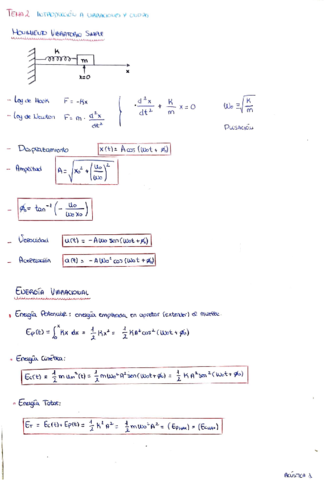 TEMA 2 INTRODUCCIÓN A VIBRACIONES Y ONDAS
MOVIMIENTO VIBRATORIO SIMPLE
K
m
x=0
x
- Ley de Hook F = -Kx
- Ley de Newton F = m · d²x/dt²
d²x/dt² + K/m x = 0
ω₀ = √(K/m)
PULSACIÓN
- Desplazamiento x(t) = A cos (ω₀t + ϕ₀)
- Amplitud A = √(x₀² + (u₀/ω₀)²)
- ϕ₀ = tan⁻¹ (- u₀/(ω₀x₀))
- Velocidad u(t) = -Aω₀ sen (ω₀t + ϕ₀)
- Aceleración a(t) = -Aω₀² cos (ω₀t + ϕ₀)
ENERGÍA VIBRACIONAL
Energía Potencial: energía empleada en apretar (extender) el muelle:
Ep(t) = ∫₀ˣ Kx dx = 1/2 Kx² = 1/2 KA² cos² (ω₀t + ϕ₀)
Energía Cinética:
Ec(t) = 1/2 mu²(t) = 1/2 mω₀²A² sen² (ω₀t + ϕ₀) = 1/2 KA² sen² (ω₀t + ϕ₀)
Energía Total:
E_T = Ec(t) + Ep(t) = 1/2 K A² = 1/2 mω₀²A² =
ACÚSTICA 1